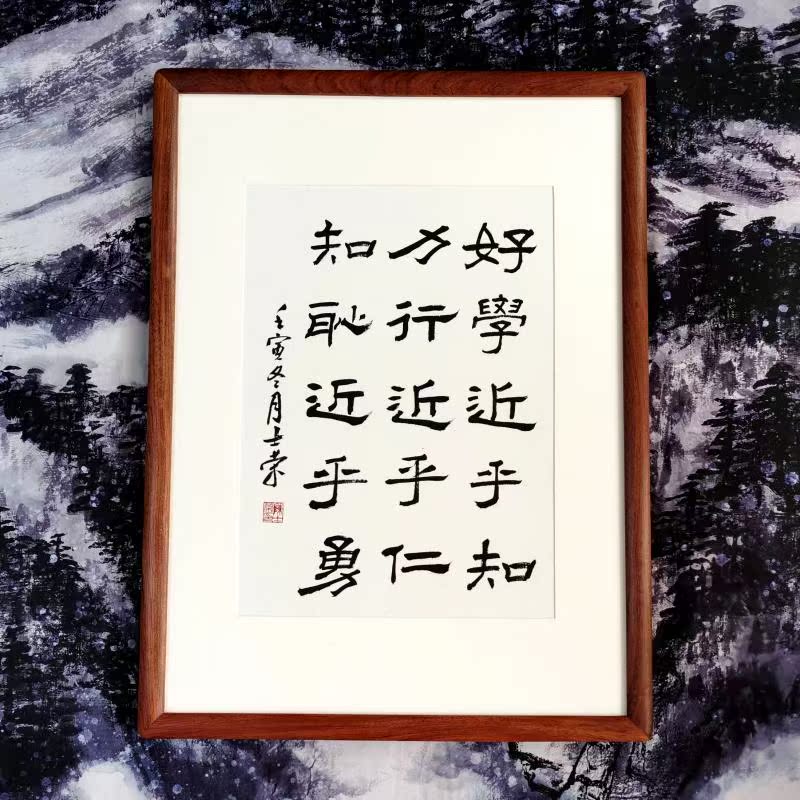 好學近乎知
力行近乎仁
知恥近乎勇
壬寅冬月士荣